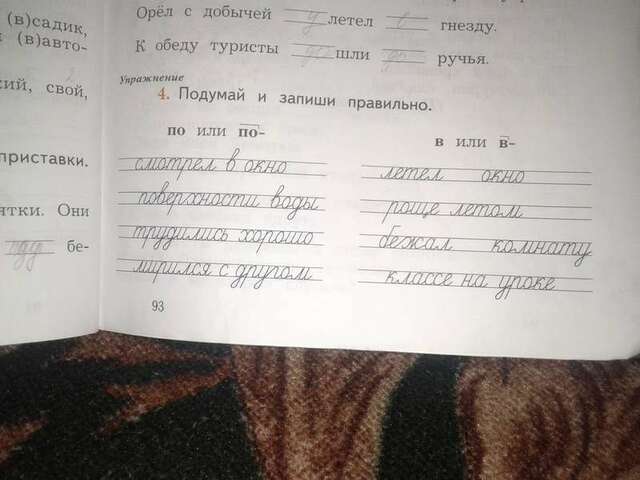 (в)садик,
(в)авто-
кий, свой,
приставки.
ятки. Они
бе-
Орёл с добычей у летел к гнезду.
К обеду туристы до шли до ручья.
Упражнение
4. Подумай и запиши правильно.
по или по-
смотрел в окно
поверхности воды
трудились хорошо
мирился с другом
в или в-
летел окно
роще летом
бежал комнату
классе на уроке
93